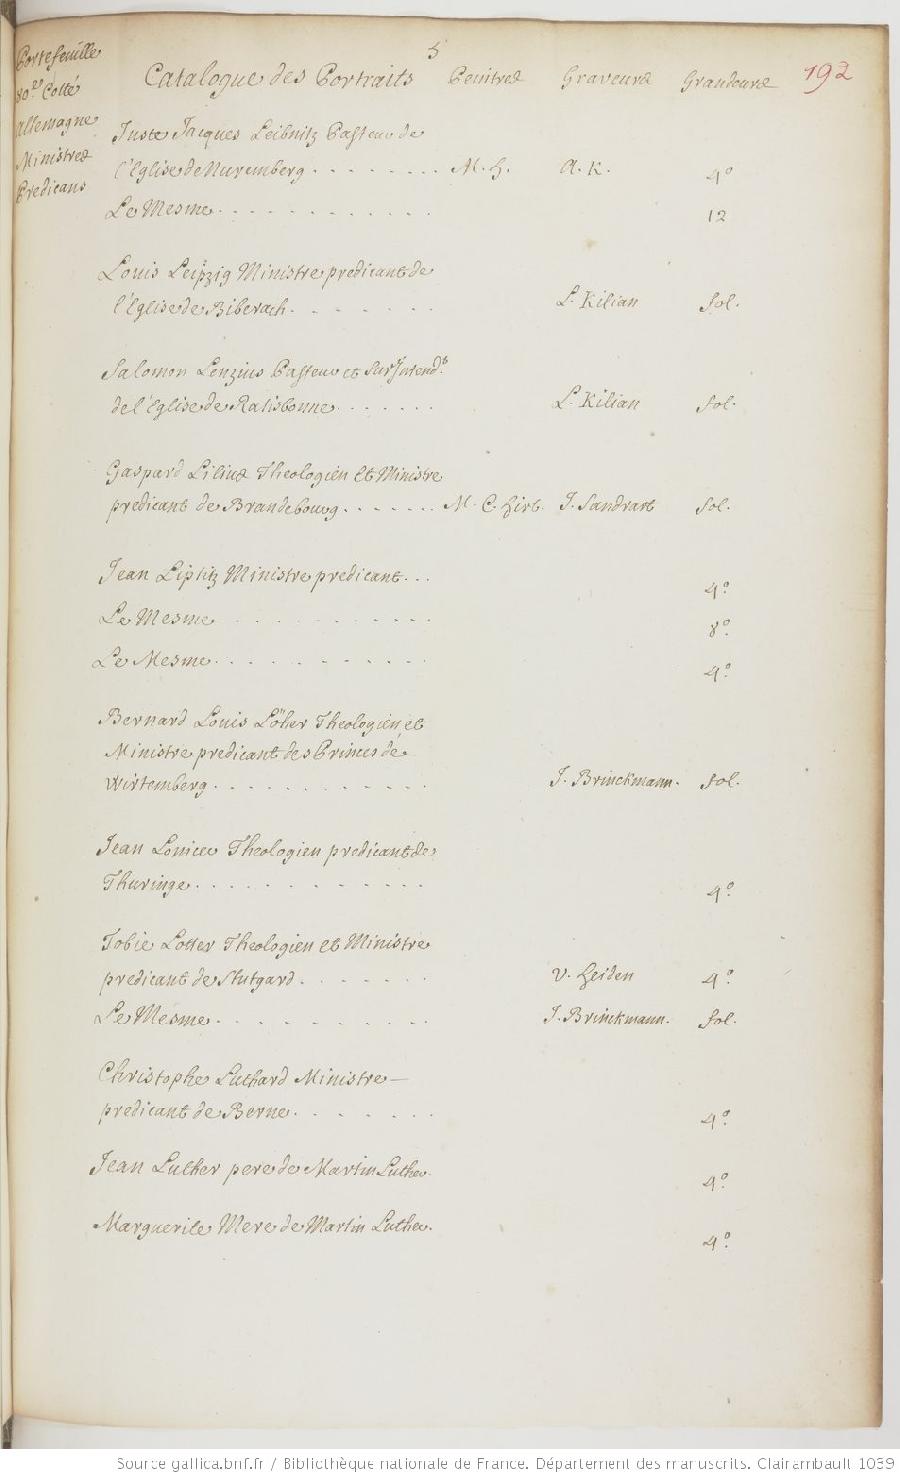 5
Portefeuille
80.es Cotté
Allemagne
Ministres
Predicans
Catalogue des Portraits Peintres Graveurs Grandeurs 192
Juste Jacques Leibnitz Pasteur de
l'Eglise de Nuremberg . . . . . . . . M. H. A. K. 4º
Le Mesme . . . . . . . . . . . . 12
Louis Leipzig Ministre predicant de
l'Eglise de Biberach . . . . . . . L. Kilian fol.
Salomon Lenzius Pasteur et SurIntend.t
de l'Eglise de Ratisbonne . . . . . . L. Kilian fol.
Gaspard Lilius Theologien et Ministre
predicant de Brandebourg . . . . . . . M. C. Hirt. J. Sandrart fol.
Jean Liptitz Ministre predicant . . . 4º.
Le Mesme . . . . . . . . . . . 8º.
Le Mesme . . . . . . . . . . . . 4º.
Bernard Louis Löher Theologien et
Ministre predicant des Princes de
Wirtemberg . . . . . . . . . . . . J. Brinckmann. fol.
Jean Lonicer Theologien predicant de
Thuringe . . . . . . . . . . . . . 4º.
Tobie Lotter Theologien et Ministre
predicant de Stutgard . . . . . . . V. Heiden 4º.
Le Mesme . . . . . . . . . . . . J. Brinckmann. fol.
Christophe Luthard Ministre —
predicant de Berne . . . . . . . . 4º.
Jean Luther pere de Martin Luther. 4º.
Marguerite Mere de Martin Luther. 4º.
Source gallica.bnf.fr / Bibliothèque nationale de France. Département des manuscrits. Clairambault 1039